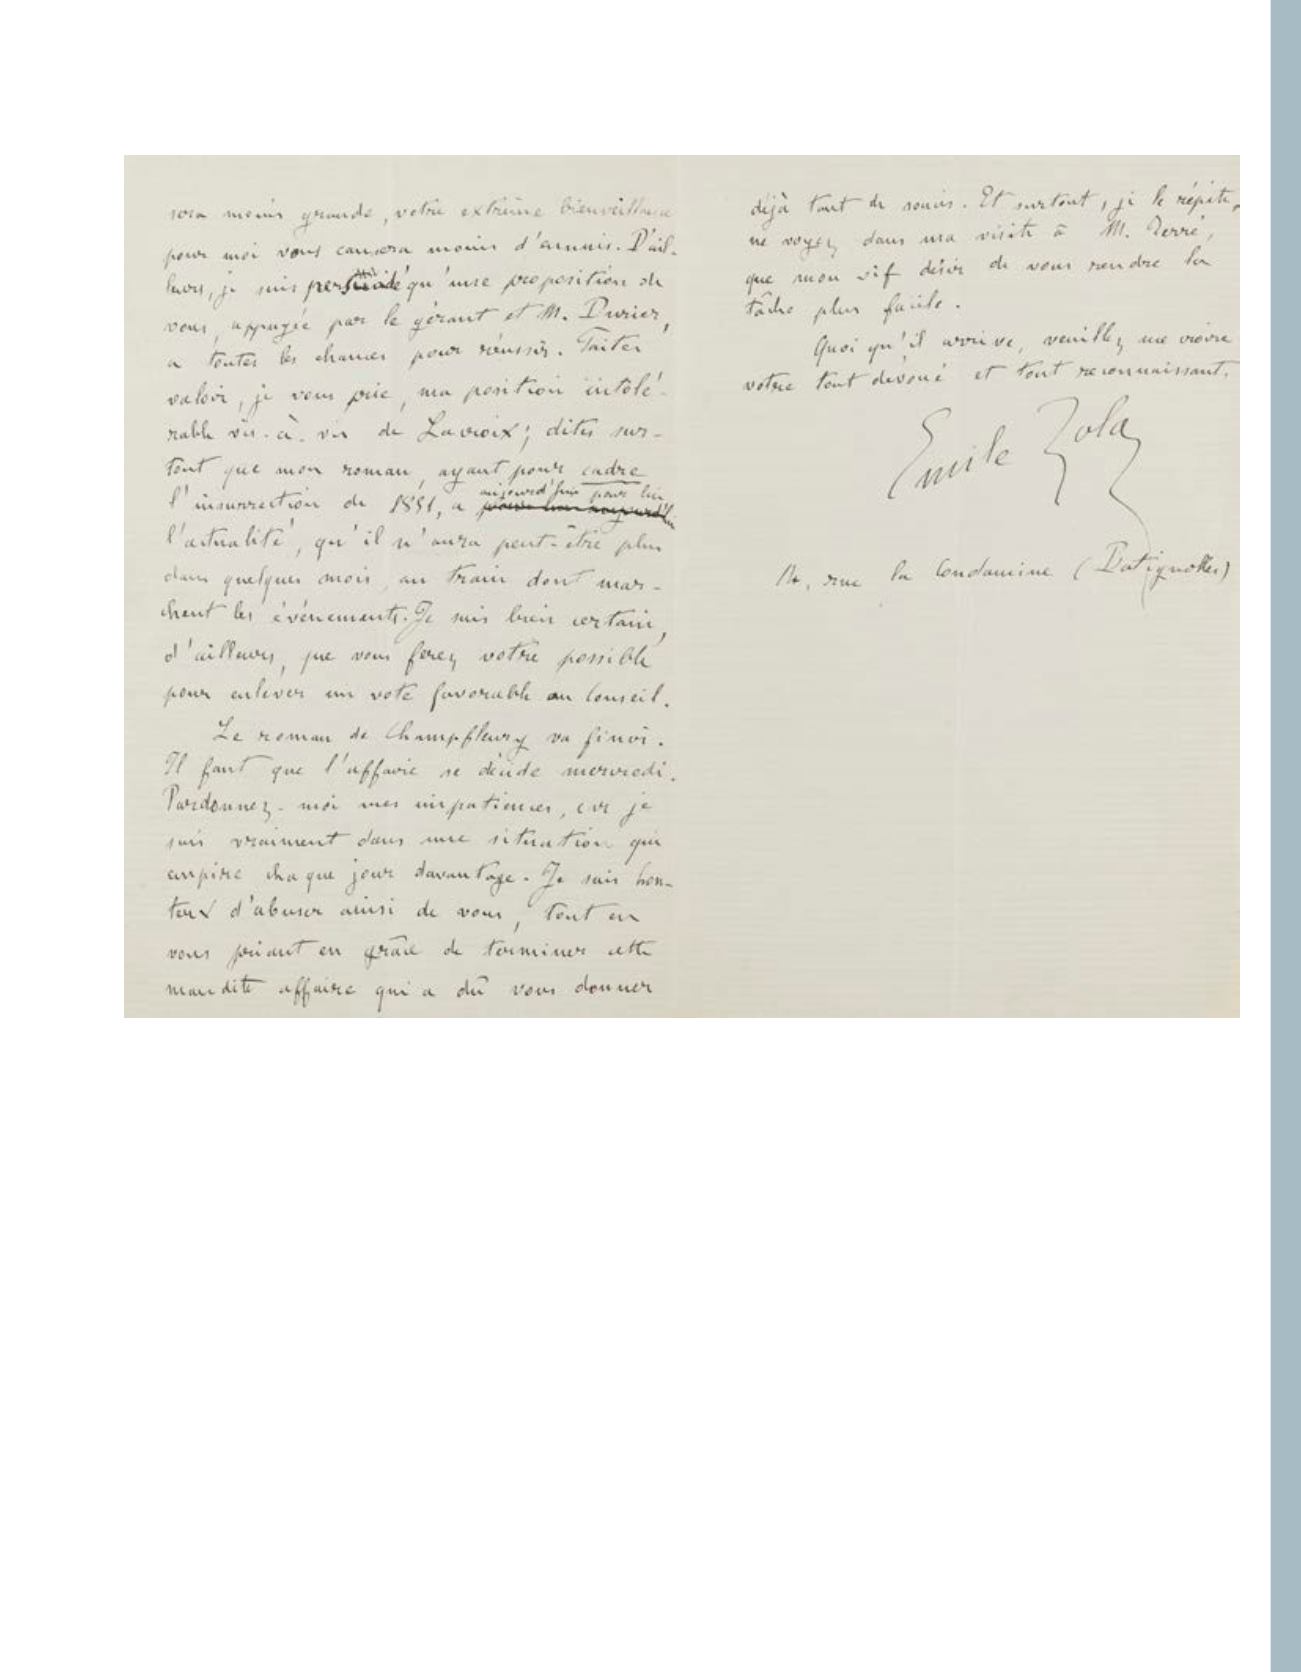 sera moins grande, votre extrême bienveillance
pour moi vous causera moins d'ennuis. D'ail-
leurs, je suis persuadé qu'une proposition de
vous, appuyée par le gérant et M.
a toutes les chances pour réussir. Faites
valoir, je vous prie, ma position intolé-
rable vis-à-vis de Lacroix; dites sur-
tout que mon roman, ayant pour cadre
l'insurrection de 1851, a aujourd'hui pour lui
l'actualité, qu'il n'aura peut-être plus
dans quelques mois, au train dont mar-
chent les événements. Je suis bien certain,
d'ailleurs, que vous ferez votre possible
pour enlever un vote favorable au Conseil.
Le roman de Champfleury va finir.
Il faut que l'affaire se décide mercredi.
Pardonnez-moi mes impatiences, car je
suis vraiment dans une situation qui
empire chaque jour davantage. Je suis hon-
teux d'abuser ainsi de vous, tout en
vous priant en grâce de terminer cette
maudite affaire qui a dû vous donner
déjà tant de soucis. Et surtout, je le répète,
ne voyez dans ma visite à M.
que mon vif désir de vous rendre la
tâche plus facile.
Quoi qu'il arrive, veuillez me croire
votre tout dévoué et tout reconnaissant.
Emile Zola
14, rue la Condamine (Batignolles)